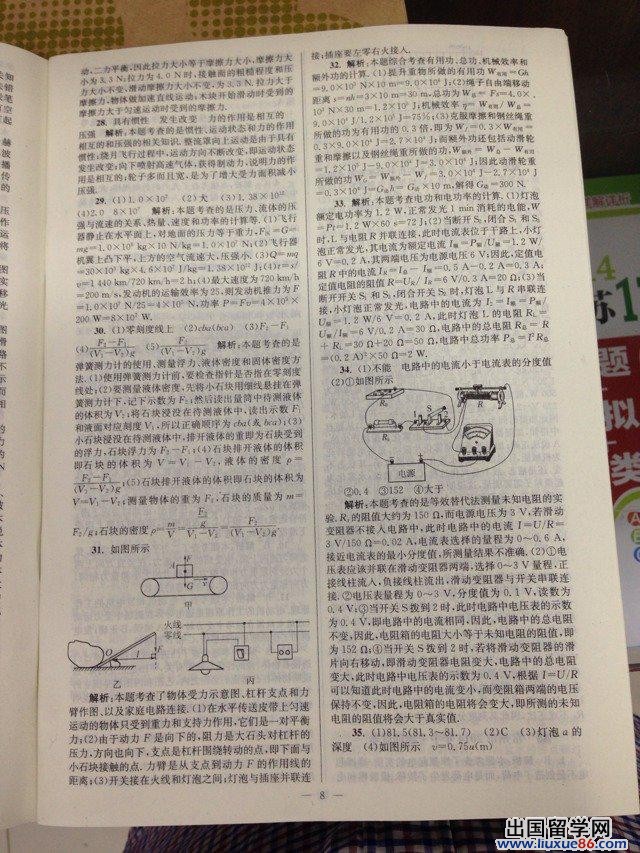 动,二力平衡,因此拉力大小等于摩擦力大小,摩擦力大
小为 3.3 N;拉力为 4.0 N 时,接触面的粗糙程度和压
力大小不变,滑动摩擦力大小不变,为 3.3 N,拉力大于
摩擦力,物体做加速直线运动;木块开始滑动时受到的
摩擦力大于匀速运动时受到的摩擦力.
28. 具有惯性 发生改变 力的作用是相互的
压强 解析:本题考查的是惯性、运动状态和力的作用
相互的和压强的相关知识.整流罩向上运动是由于具有
惯性;绕月飞行过程中,运动方向不断改变,即运动状态
发生改变;向下喷射高速气体,获得制动力,说明力的作
用是相互的;轮子多而且宽,是为了增大受力面积减小
压强.
29. (1)1.0×10⁷ (2)大 (3)1.38×10¹¹
(4)2.0 8×10⁷ 解析:本题考查的是压力、流体的压
强与流速的关系、热量、速度和功率的计算等.(1)飞行
器静止在水平面上,对地面的压力等于重力,F_N=G=
mg=1.0×10⁶ kg×10 N/kg=1.0×10⁷ N;(2)飞行器
机翼上凸下平,上方的空气流速大,压强小,(3)Q=mq
=30×10³ kg×4.6×10⁷ J/kg=1.38×10¹² J;(4)t=s/
v=1 440 km/720 km/h=2 h;(5)最大速度为 720 km/h
=200 m/s,发动机的运输效率为 25,则发动机推力为 F
=1.0×10⁷ N/25=4×10⁵ N,功率 P=Fv=4×10⁵×
200 W=8×10⁷ W.
30. (1)零刻度线上 (2)cba(bca) (3)F₂−F₁
(4)(F₂−F₁)/((V₁−V₂)g) (5)F₂/((V₁−V₂)g) 解析:本题考查的是
弹簧测力计的使用、测量浮力、液体密度和固体密度方
法.(1)使用弹簧测力计前,要检查指针是否指在零刻度
线处;(2)要测量液体密度,先将小石块用细线悬挂在弹
簧测力计下,记下示数为 F₂;然后读出量筒中待测液体
的体积为 V₂;将石块浸没在待测液体中,读出示数 F₁
和液面对应刻度 V₁,所以正确顺序为 cba(或 bca);(3)
小石块浸没在待测液体中,排开液体的重即为石块受到
的浮力,石块浮力为 F₂−F₁;(4)石块排开液体的体积
即石块的体积为 V=V₁−V₂,液体的密度 ρ=
(F₂−F₁)/((V₁−V₂)g);(5)石块排开液体的体积即石块的体积为
V=V₁−V₂;测量物体的重为 F₂,石块的质量为 m=
F₂/g;石块的密度 ρ=m/V=(F₂/g)/(V₁−V₂)=F₂/((V₁−V₂)g).
31. 如图所示
F
A
G
甲
火线
零线
O
l
F
乙
丙
解析:本题考查了物体受力示意图、杠杆支点和力
臂作图,以及家庭电路连接.(1)在水平传送皮带上匀速
运动的物体只受到重力和支持力作用,它们是一对平衡
力;(2)由于动力 F 是向下的,阻力是大石头对杠杆的
压力,方向也向下,支点是杠杆围绕转动的点,即下面与
小石块接触的点.力臂是从支点到动力 F 的作用线的
距离;(3)开关接在火线和灯泡之间;灯泡与插座并联连
接;插座要左零右火接入.
32. 解析:本题综合考查有用功、总功、机械效率和
额外功的计算.(1)提升重物所做的有用功 W有用=Gh
=9.0×10³ N×10 m=9.0×10⁴ J;(2)绳子自由端移动
距离 s=nh=3×10 m=30 m,总功为 W总=Fs=4.0×
10³ N×30 m=1.2×10⁵ J;机械效率 η=W有用/W总=
9.0×10⁴ J/1.2×10⁵ J=75%;(3)克服摩擦和钢丝绳重
所做的功为有用功的 0.3 倍,即为 Wf=0.3×W有用=
0.3×9.0×10⁴ J=2.7×10⁴ J;而额外功还包括动滑轮
重和摩擦以及钢丝绳重所做的功,W额外=W总−W有用
=1.2×10⁵ J−9.0×10⁴ J=3.0×10⁴ J;因此动滑轮重
所做的功 W动=W额外−Wf=3.0×10⁴ J−2.7×10⁴ J
=0.3×10⁴ J=G动h=G动×10 m,解得 G动=300 N.
33. 解析:本题考查电功和电功率的计算.(1)灯泡
额定电功率为 1.2 W,正常发光 1 min 消耗的电能,W
=Pt=1.2 W×60 s=72 J;(2)当断开 S₁、闭合 S₂ 和 S₃
时,L 与电阻 R 并联连接,此时电流表位于干路上,小灯
泡正常发光,其电流为额定电流 I额=P额/U额=1.2 W/
6 V=0.2 A,其两端电压为电源电压 6 V;因此,定值电
阻 R 中的电流 I_R=I总−I额=0.5 A−0.2 A=0.3 A;
定值电阻的阻值 R=U_R/I_R=6 V/0.3 A=20 Ω;(3)当
断开开关 S₁ 和 S₃,闭合开关 S₂ 时,灯泡 L 与 R 串联连
接,小灯泡正常发光,电路中的电流为 I₂=I额=P额/
U额=1.2 W/6 V=0.2 A,此时灯泡 L 的电阻 R_L=
U额/I额=6 V/0.2 A=30 Ω,电路中的总电阻 R总=R
+R_L=30 Ω+20 Ω=50 Ω,电路中总功率 P总=I²R总
=(0.2 A)²×50 Ω=2 W.
34. (1)不能 电路中的电流小于电流表的分度值
(2)①如图所示
S
R
电源
②0.4 ③152 ④大于
解析:本题考查的是等效替代法测量未知电阻的实
验.Rₓ的阻值大约为 150 Ω,而电源电压为 3 V,若滑动
变阻器不接入电路中,此时电路中的电流 I=U/R=
3 V/150 Ω=0.02 A,电流表选择的量程为 0~0.6 A,
接近电流表的最小分度值,所测量结果不准确.(2)①电
压表应该并联在滑动变阻器两端,选择 0~3 V 量程,正
接线柱流入,负接线柱流出,滑动变阻器与开关串联连
接.②电压表量程为 0~3 V,分度值为 0.1 V,读数为
0.4 V;③当开关 S 拨到 2 时,此时电路中电压表的示数
为 0.4 V,即电路中的电流相同,因此,电路中的总电阻
不变,因此,电阻箱的电阻大小等于未知电阻的阻值,即
为 152 Ω;④当开关 S 拨到 2 时,若将滑动变阻器的滑
片向右移动,即滑动变阻器电阻变大,电路中的总电阻
变大,此时电路中电压表的示数为 0.4 V,根据 I=U/R
可以知道此时电路中的电流变小,而变阻箱两端的电压
保持不变,因此,电阻箱的电阻将会变大,即所测的未知
电阻的阻值将会大于真实值.
35. (1)81.5(81.3~81.7) (2)C (3)灯泡 a 的
深度 (4)如图所示 v=0.75u(m)
— 8 —
出国留学网
www.liuxue86.com